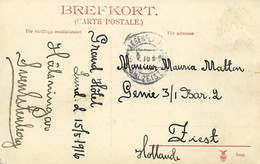 BREFKORT.
(CARTE POSTALE.)
För skriftliga meddelanden
För adressen
Grand Hôtel
Lund. d 15/5 1916
Hälsningar
Monsieur Mauria Matton
Genie 3/1 Bar. 2
Ziest
Hollande